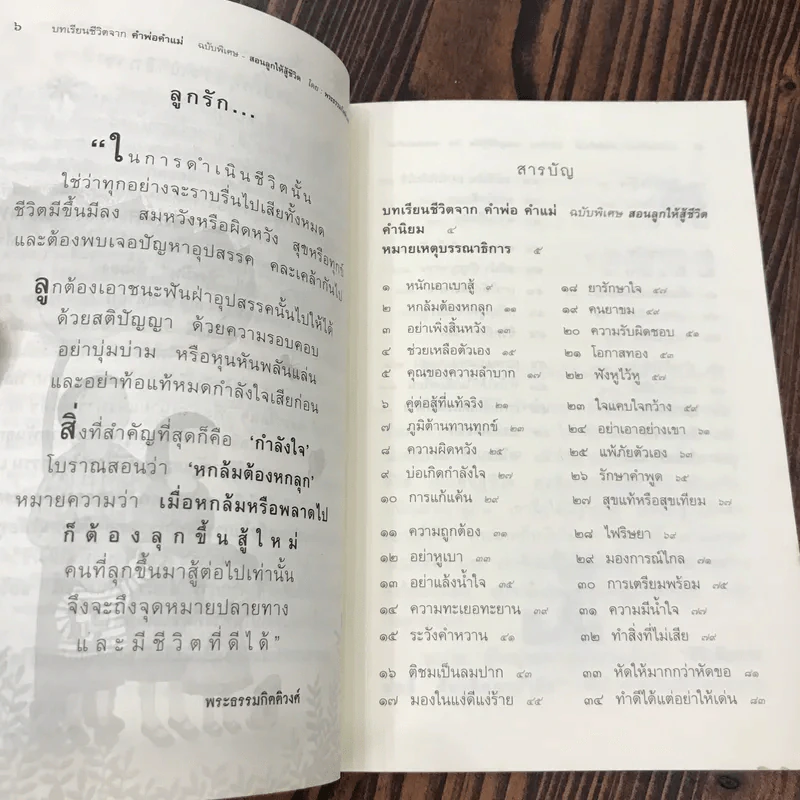 ๖ บทเรียนชีวิตจาก คำพ่อคำแม่ ฉบับพิเศษ - สอนลูกให้สู้ชีวิต โดย : พระธรรมกิตติวงศ์
ลูกรัก...
“ในการดำเนินชีวิตนั้น
ใช่ว่าทุกอย่างจะราบรื่นไปเสียทั้งหมด
ชีวิตมีขึ้นมีลง สมหวังหรือผิดหวัง สุขหรือทุกข์
และต้องพบเจอปัญหาอุปสรรค คละเคล้ากันไป
ลูกต้องเอาชนะฟันฝ่าอุปสรรคนั้นไปให้ได้
ด้วยสติปัญญา ด้วยความรอบคอบ
อย่าบุ่มบ่าม หรือหุนหันพลันแล่น
และอย่าท้อแท้หมดกำลังใจเสียก่อน
สิ่งที่สำคัญที่สุดก็คือ ‘กำลังใจ’
โบราณสอนว่า ‘หกล้มต้องหกลุก’
หมายความว่า เมื่อหกล้มหรือพลาดไป
ก็ต้องลุกขึ้นสู้ใหม่
คนที่ลุกขึ้นมาสู้ต่อไปเท่านั้น
จึงจะถึงจุดหมายปลายทาง
และมีชีวิตที่ดีได้”
พระธรรมกิตติวงศ์
สารบัญ
บทเรียนชีวิตจาก คำพ่อ คำแม่ ฉบับพิเศษ สอนลูกให้สู้ชีวิต
คำนิยม ๔
หมายเหตุบรรณาธิการ ๕
๑ หนักเอาเบาสู้ ๙
๒ หกล้มต้องหกลุก ๑๑
๓ อย่าเพิ่งสิ้นหวัง ๑๓
๔ ช่วยเหลือตัวเอง ๑๕
๕ คุณของความลำบาก ๑๗
๖ คู่ต่อสู้ที่แท้จริง ๒๑
๗ ภูมิต้านทานทุกข์ ๒๓
๘ ความผิดหวัง ๒๕
๙ บ่อเกิดกำลังใจ ๒๗
๑๐ การแก้แค้น ๒๙
๑๑ ความถูกต้อง ๓๑
๑๒ อย่าหูเบา ๓๓
๑๓ อย่าแล้งน้ำใจ ๓๕
๑๔ ความทะเยอทะยาน ๓๙
๑๕ ระวังคำหวาน ๔๑
๑๖ ติชมเป็นลมปาก ๔๓
๑๗ มองในแง่ดีแง่ร้าย ๔๕
๑๘ ยารักษาใจ ๔๗
๑๙ คนยาขม ๔๙
๒๐ ความรับผิดชอบ ๕๑
๒๑ โอกาสทอง ๕๓
๒๒ ฟังหูไว้หู ๕๗
๒๓ ใจแคบใจกว้าง ๕๙
๒๔ อย่าเอาอย่างเขา ๖๑
๒๕ แพ้ภัยตัวเอง ๖๓
๒๖ รักษาคำพูด ๖๕
๒๗ สุขแท้หรือสุขเทียม ๖๗
๒๘ ไฟริษยา ๖๙
๒๙ มองการณ์ไกล ๗๑
๓๐ การเตรียมพร้อม ๗๕
๓๑ ความมีน้ำใจ ๗๗
๓๒ ทำสิ่งที่ไม่เสีย ๗๙
๓๓ หัดให้มากกว่าหัดขอ ๘๑
๓๔ ทำดีได้แต่อย่าให้เด่น ๘๓